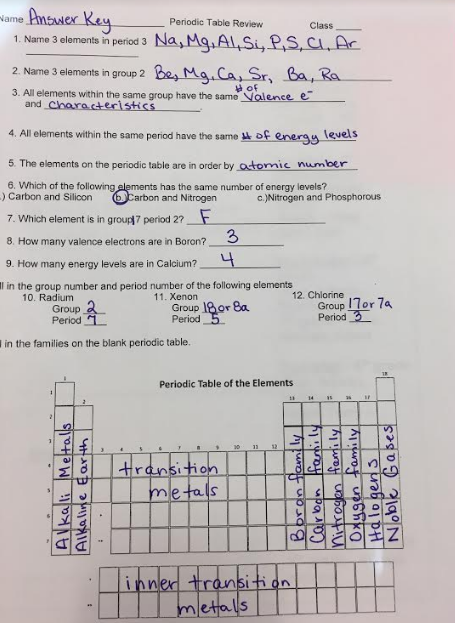 Name Answer Key Periodic Table Review Class
1. Name 3 elements in period 3 Na, Mg, Al, Si, P, S, Cl, Ar
2. Name 3 elements in group 2 Be, Mg, Ca, Sr, Ba, Ra
3. All elements within the same group have the same # of Valence e-
and characteristics.
4. All elements within the same period have the same # of energy levels
5. The elements on the periodic table are in order by atomic number
6. Which of the following elements has the same number of energy levels?
.) Carbon and Silicon b.)Carbon and Nitrogen c.)Nitrogen and Phosphorous
7. Which element is in group17 period 2? F
8. How many valence electrons are in Boron? 3
9. How many energy levels are in Calcium? 4
ll in the group number and period number of the following elements
10. Radium 11. Xenon 12. Chlorine
Group 2 Group 18 or 8a Group 17 or 7a
Period 7 Period 5 Period 3
l in the families on the blank periodic table.
Periodic Table of the Elements
1 18
2 13 14 15 16 17
3 4 5 6 7 8 9 10 11 12
1
2
3
4
5
6
7
Alkali Metals
Alkaline Earth
transition
metals
Boron family
Carbon family
Nitrogen family
Oxygen family
Halogens
Noble Gases
inner transition
metals